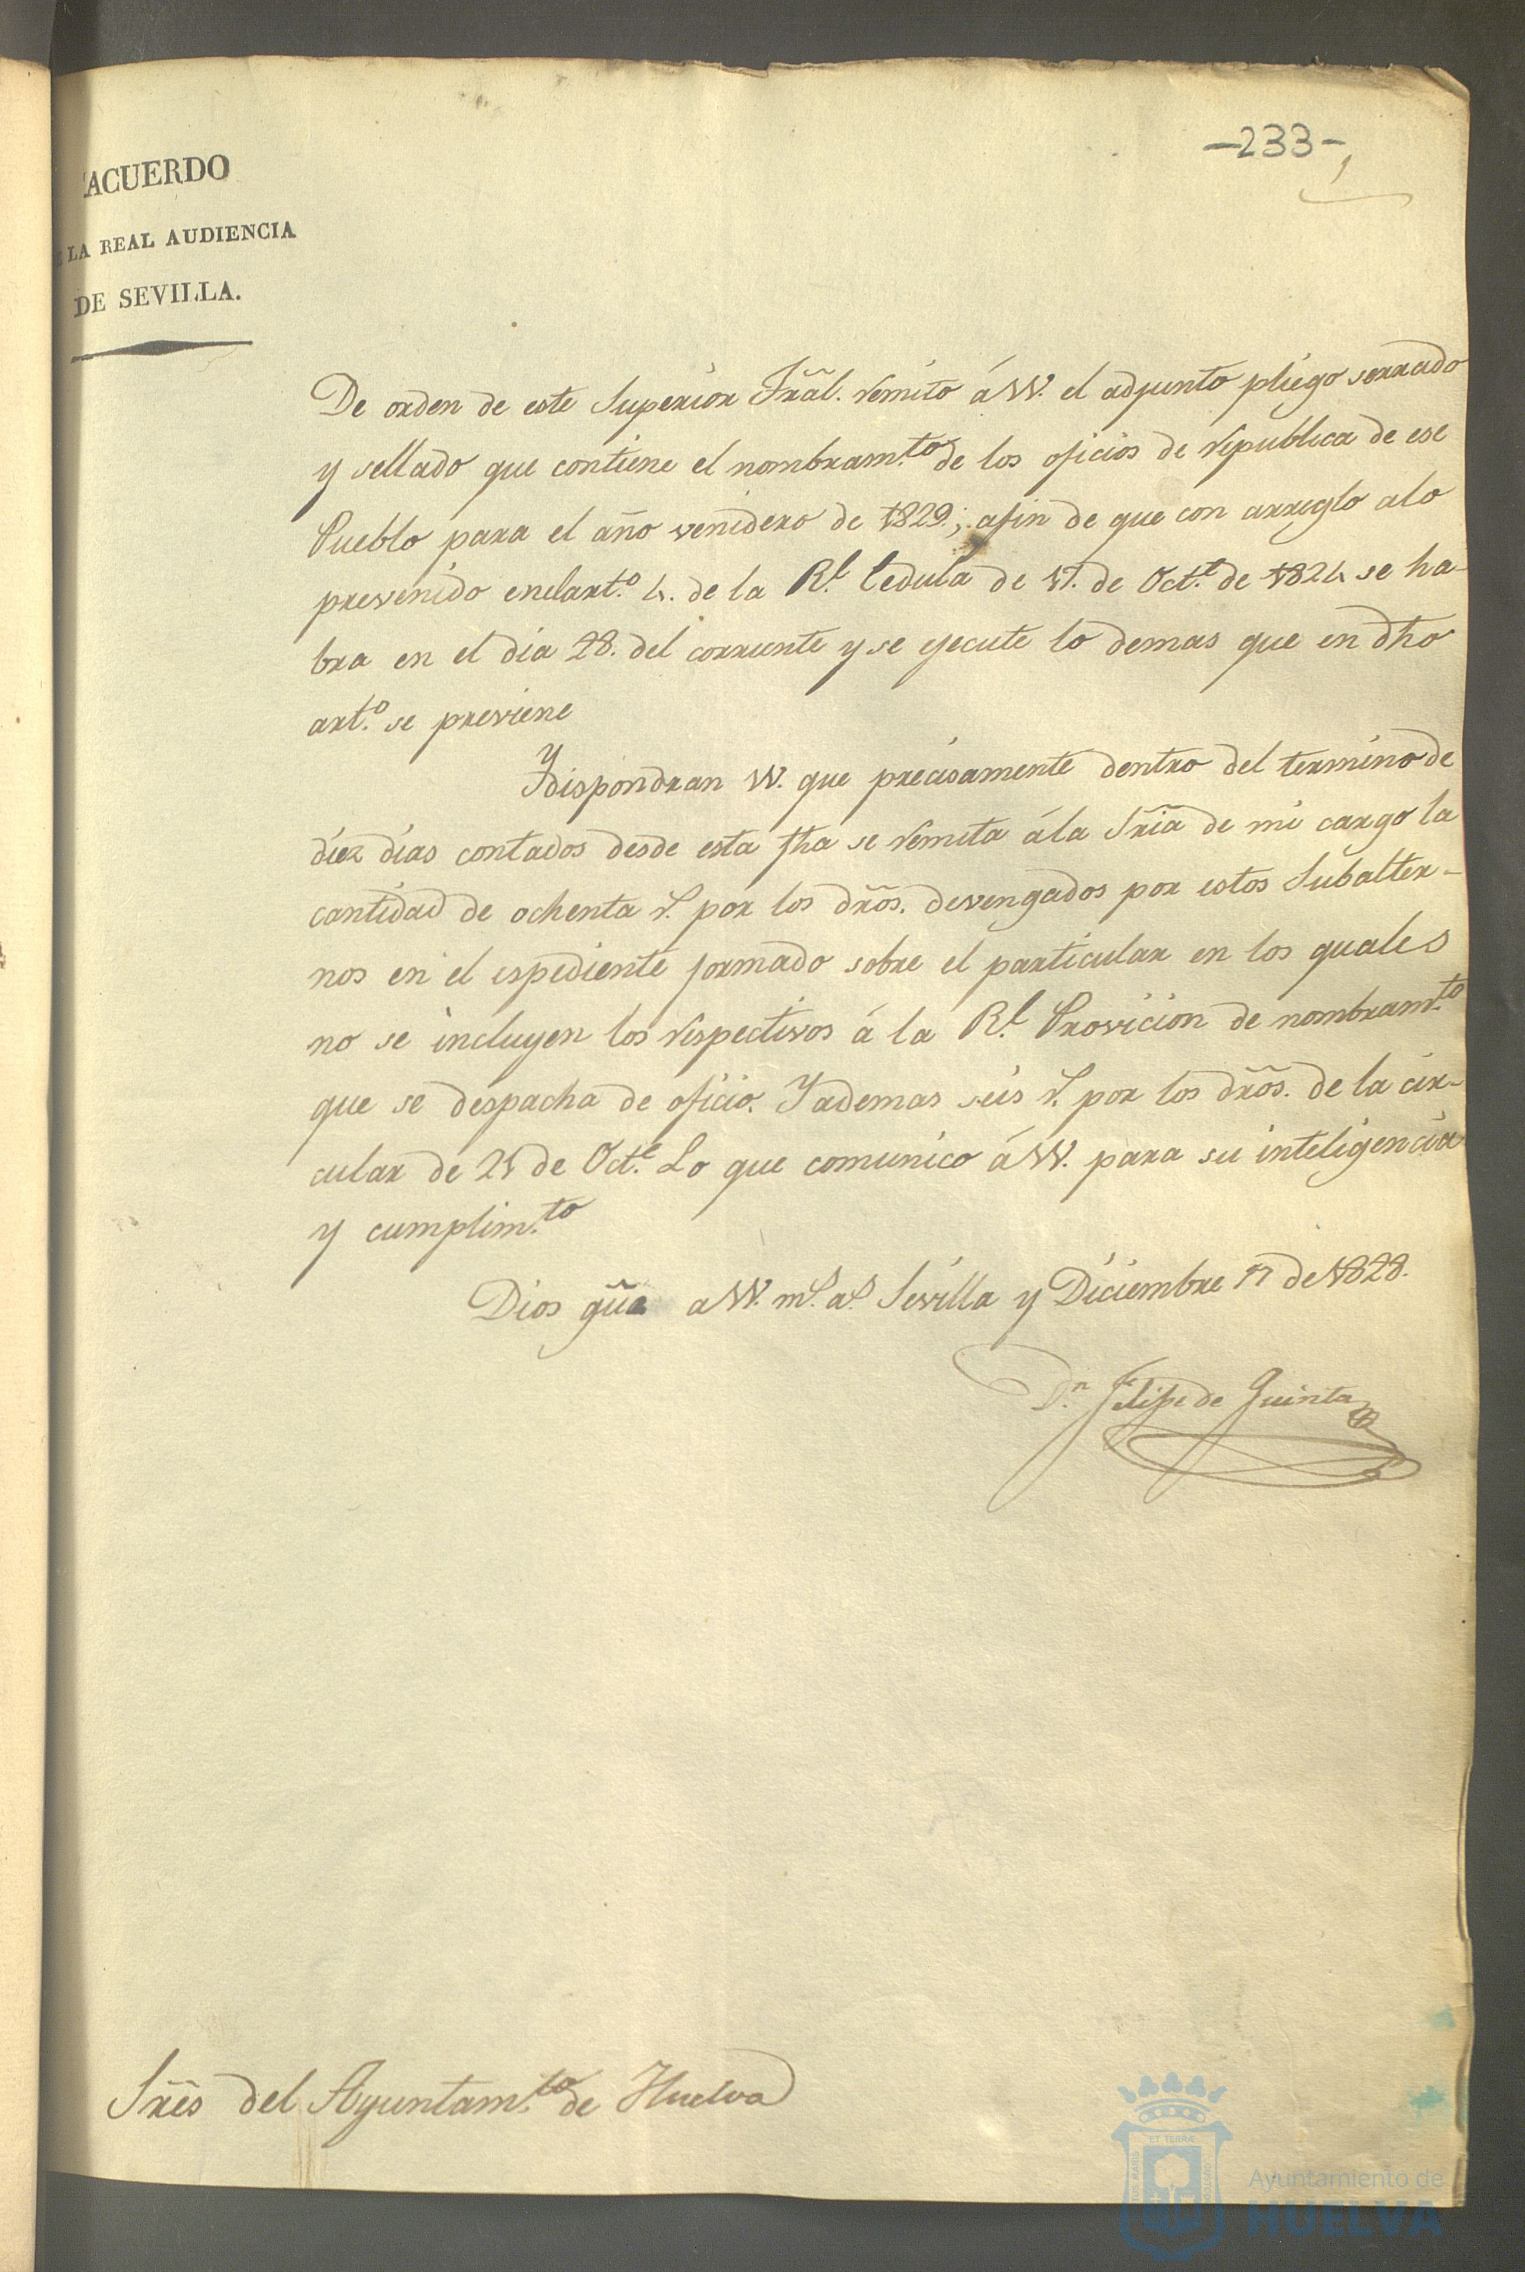 -233-
ACUERDO
E LA REAL AUDIENCIA
DE SEVILLA.
De orden de este Superior Trãl. remito á VV. el adjunto pliego serrado
y sellado que contiene el nombram.to de los oficios de republica de ese
Pueblo para el año venidero de 1829; afin de que con arreglo alo
prevenido enelart.o 4. de la R.l Cedula de 17. de Oct.e de 1824 se ha-
bra en el dia 28. del corriente y se ejecute lo demas que en dho
art.o se previene
Y dispondran VV. que precisamente dentro del termino de
diez dias contados desde esta fha se remita á la Srĩa de mi cargo la
cantidad de ochenta r.s por los drõs. devengados por estos Subalter-
nos en el espediente formado sobre el particular en los quales
no se incluyen los respectivos á la R.l Provicion de nombram.to
que se despacha de oficio. Y ademas seis r.s por los drõs. de la cir-
cular de 21 de Oct.e Lo que comunico á VV. para su inteligencia
y cumplim.to
Dios gũe a VV. m.s a.s Sevilla y Diciembre 17 de 1828.
D.n Felipe de Quinta
Srẽs del Ayuntam.to de Huelva
ET TERRÆ
Ayuntamiento de
HUELVA